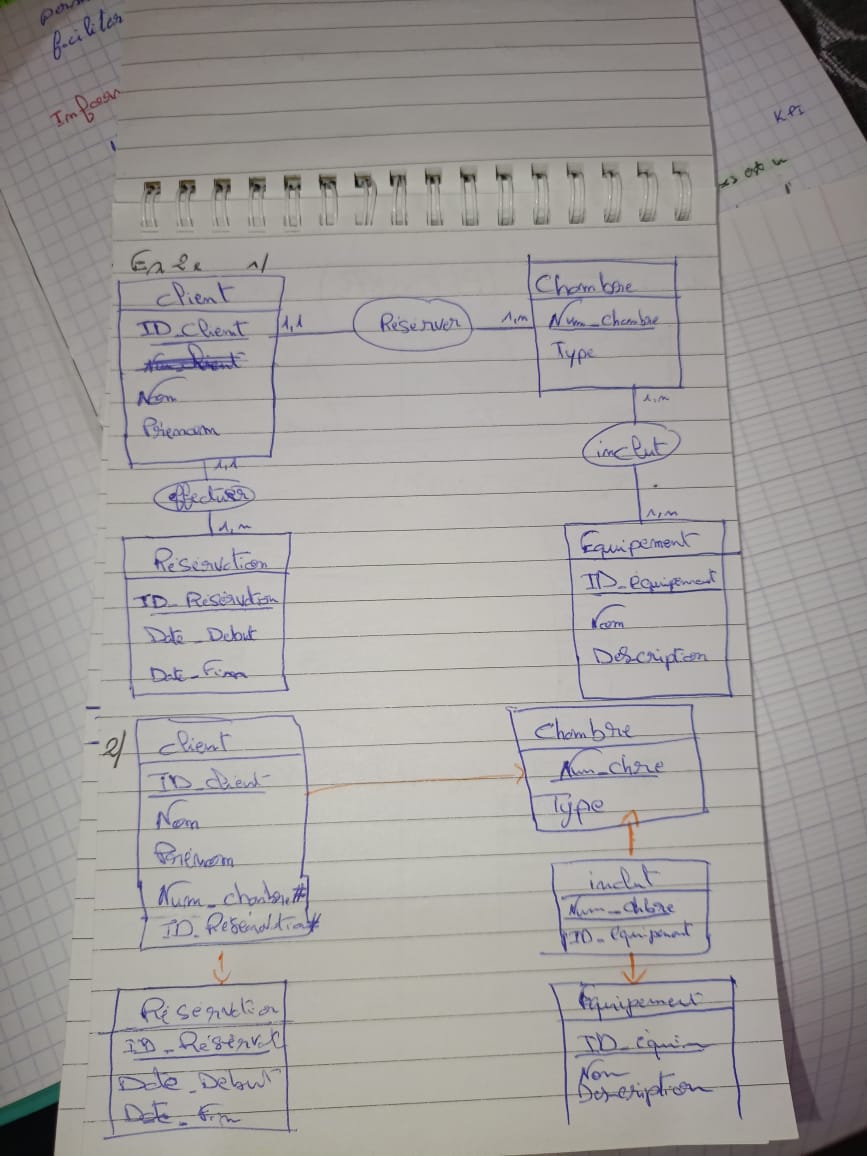 faciliter
KPI
Ex 2: 1/
Client
ID_Client
Nom
Prenom
1,1
Réserver
1,n
Chambre
Num_Chambre
Type
1,n
inclut
1,n
1,1
effectuer
1,n
Réservation
ID_Réservation
Date_Debut
Date_Fin
Equipement
ID_equipement
Nom
Description
2/
Client
ID_Client
Nom
Prénom
Num_chambre#
ID_Réservation#
Chambre
Num_chbre
Type
inclut
Num_chbre
ID_equipement
Réservation
ID_Réservat
Date_Debut
Date_Fin
Equipement
ID_equip
Nom
Description